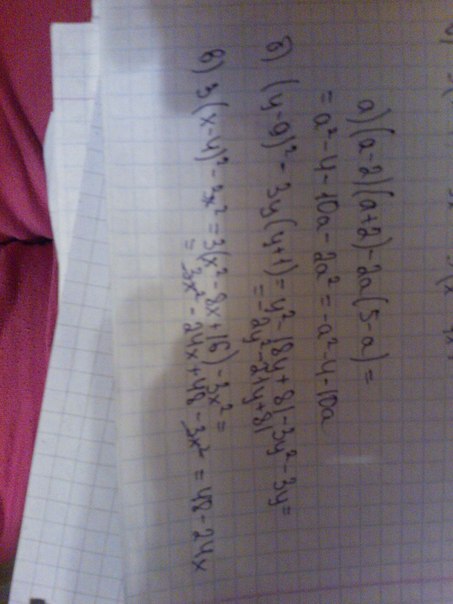 а) (a-2)(a+2)-2a(5-a) =
= a²-4-10a-2a² = -a²-4-10a
б) (y-9)²-3y(y+1) = y²-18y+81-3y²-3y=
= -2y²-21y+81
в) 3(x-4)²-3x² = 3(x²-8x+16)-3x² =
= 3x²-24x+48-3x² = 48-24x